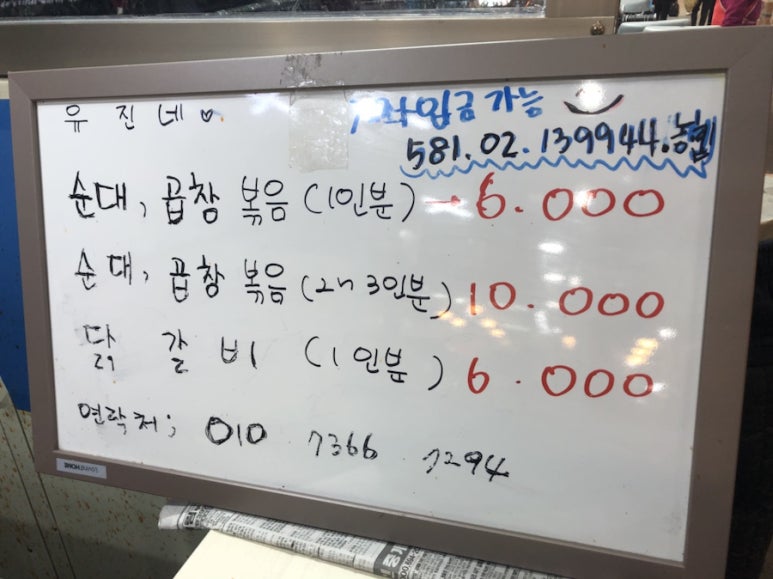 유진네♡
계좌입금 가능
581.02.139944.농협
순대, 곱창 볶음 (1인분) → 6.000
순대, 곱창 볶음 (2~3인분) 10.000
닭 갈 비 (1인분) 6.000
연락처; 010 7366 7294
LOVELYHOME